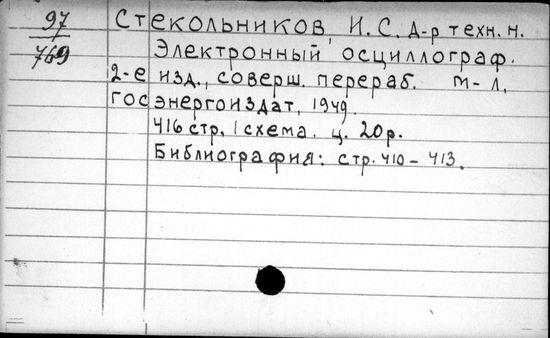 97/769
Стекольников, И.С. д-р техн. н.
Электронный осциллограф.
2-е изд., соверш. перераб. М-Л,
Госэнергоиздат, 1949.
416 стр, 1 схема. ц. 20р.
Библиография: стр. 410-413.